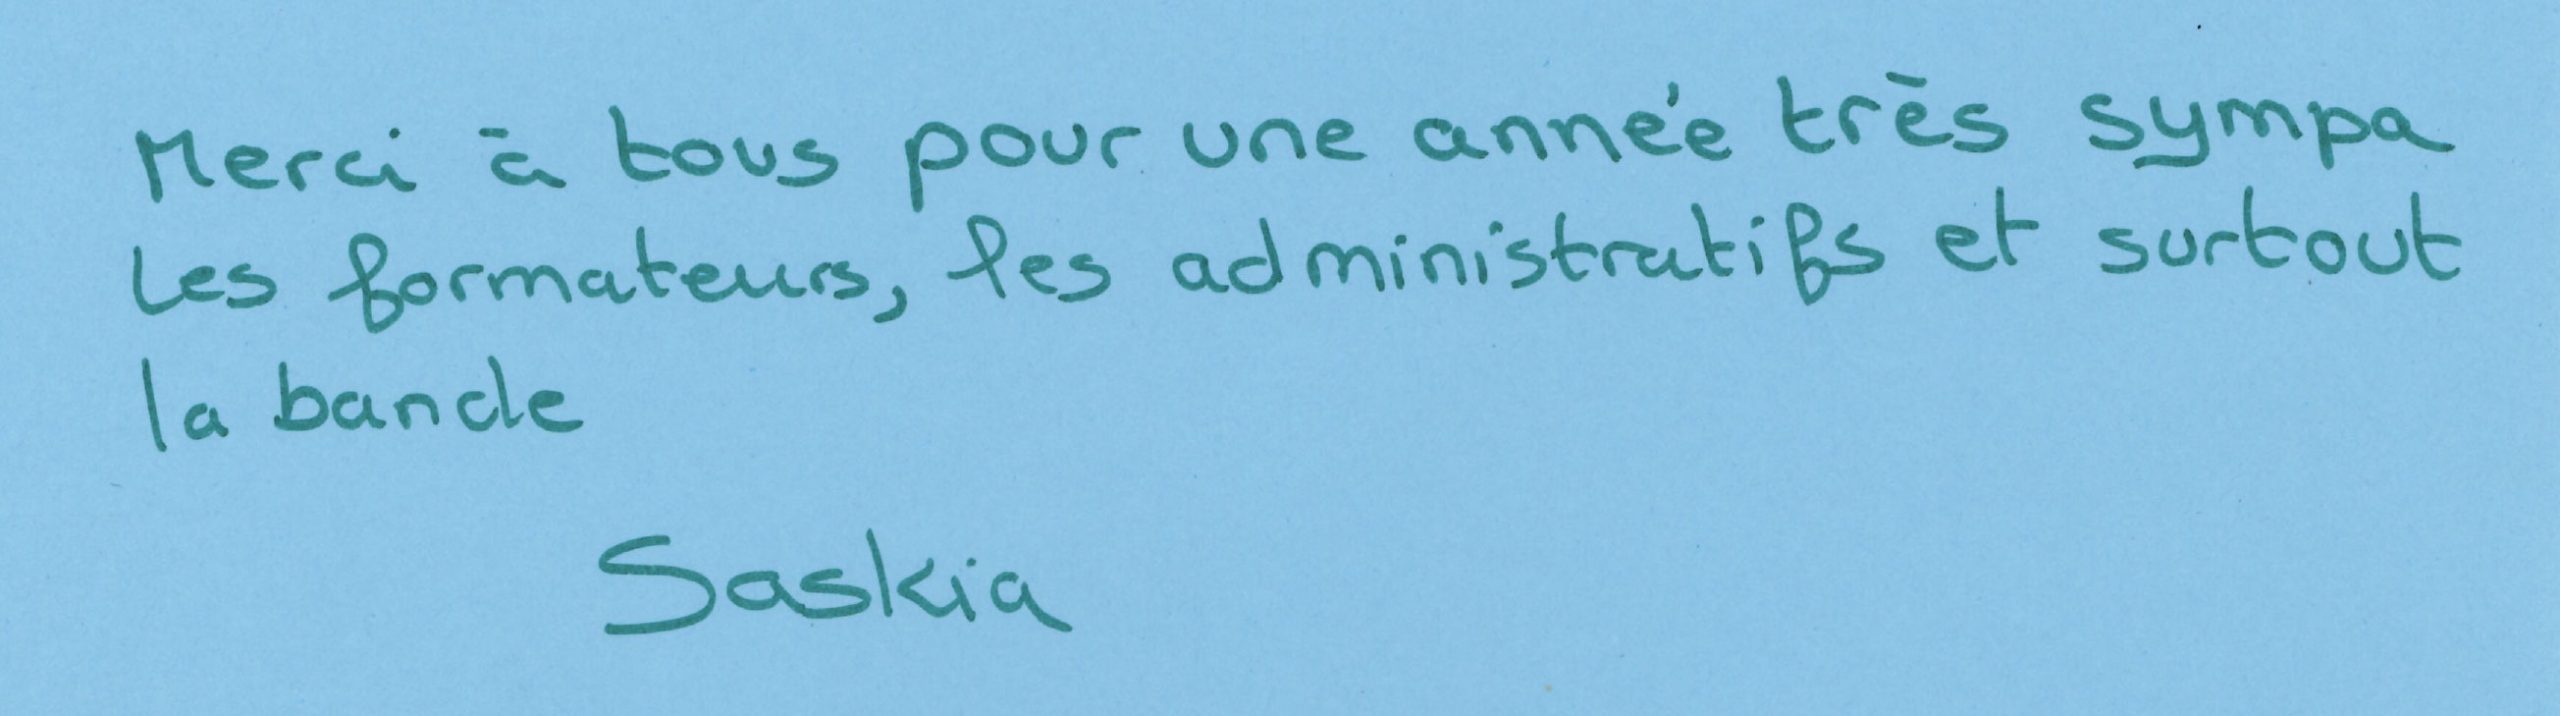 Merci à tous pour une année très sympa
Les formateurs, les administratifs et surtout
la bande
Saskia